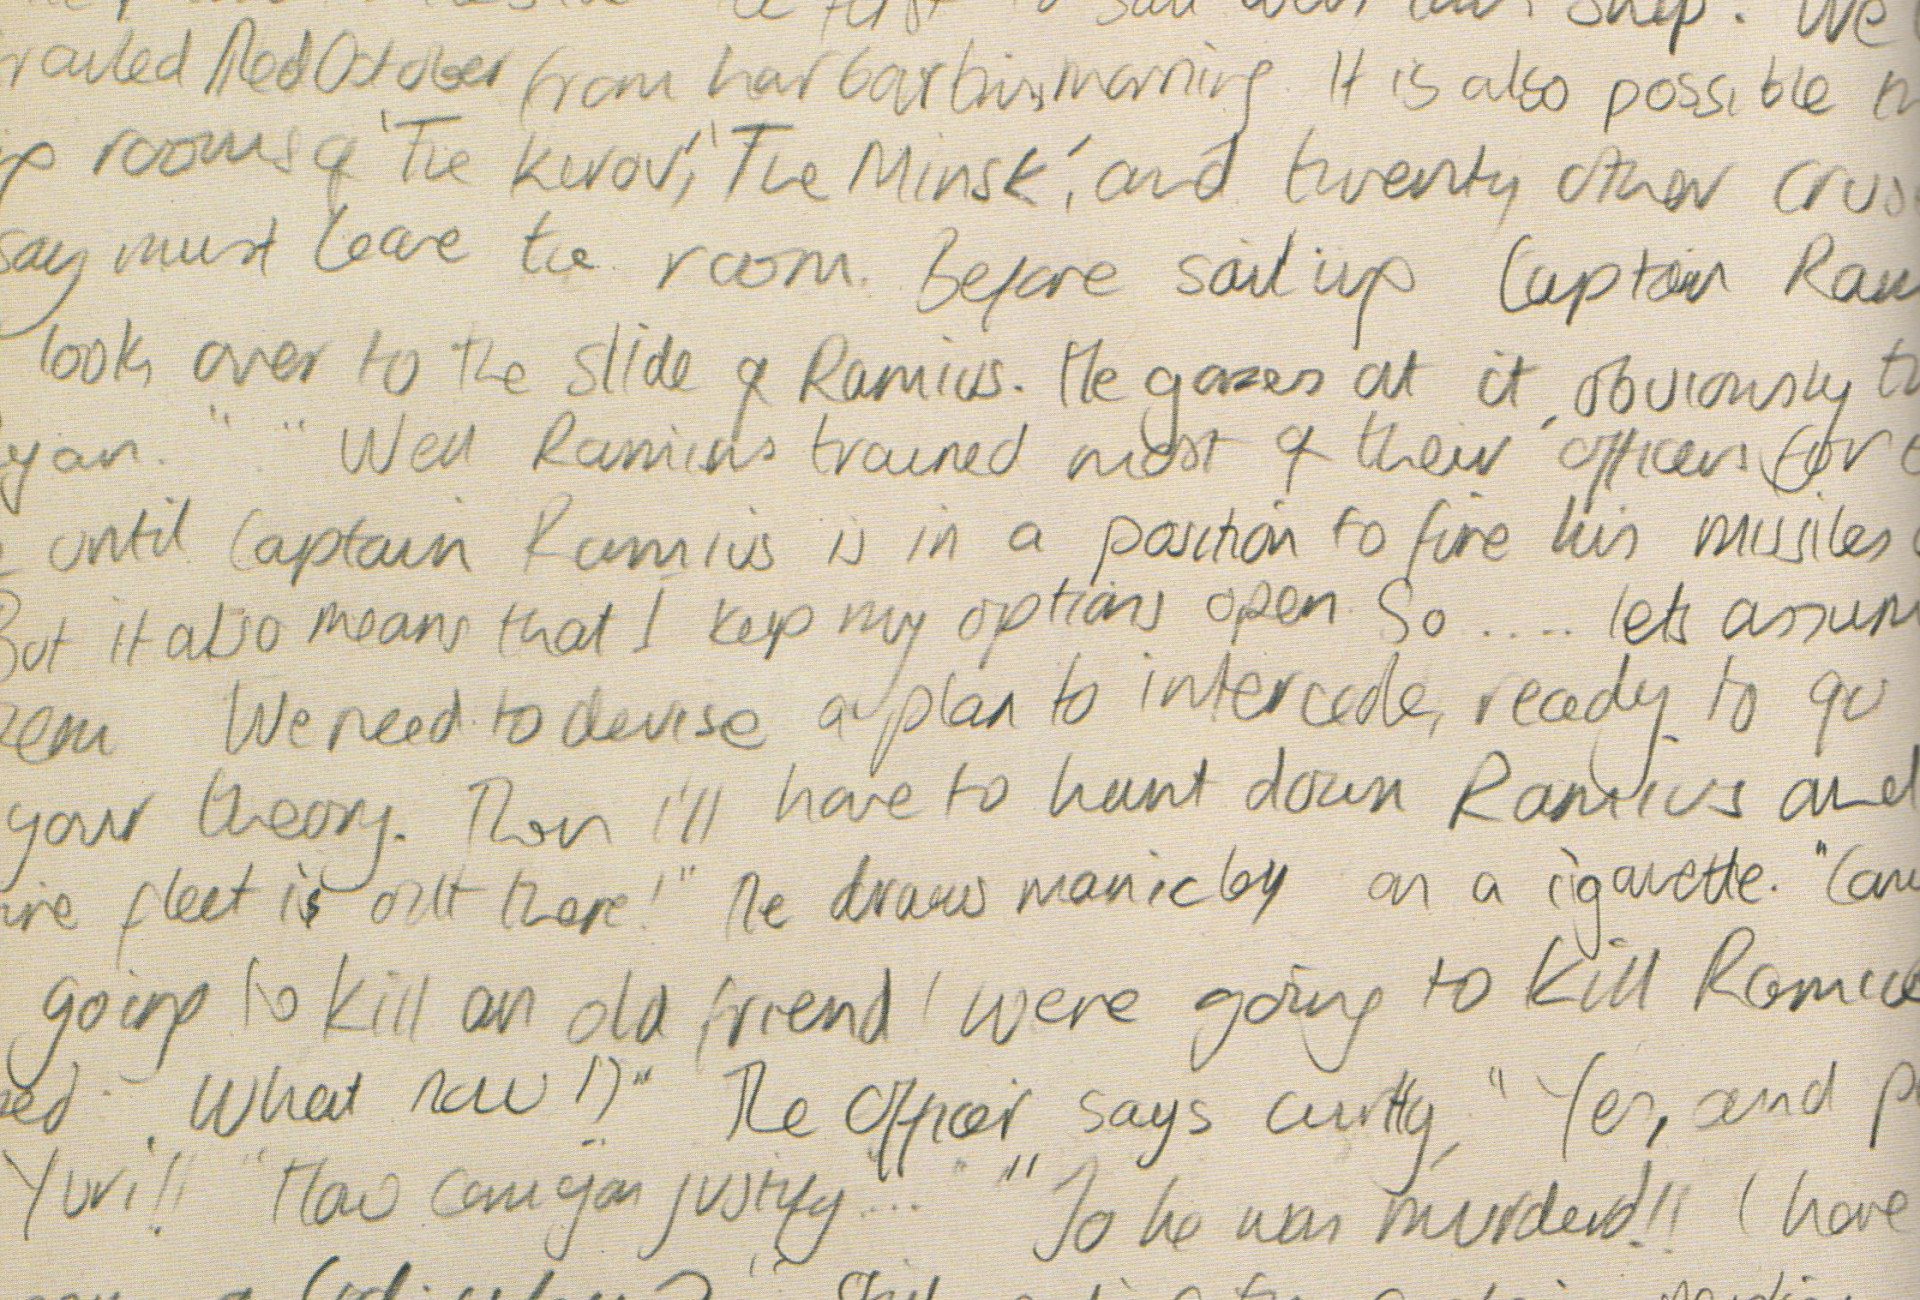 to sail ship. We
trailed Red October from harbour this morning. It is also possible
rooms of 'The Kirov', 'The Minsk', and twenty other
say must leave the room. Before sail up Captain Ram
look over to the slide of Ramius. He gazes at it, obviously
yan." "Well Ramius trained most of their officers for
until Captain Ramius is in a position to fire his missiles
But it also means that I keep my options open. So ..... lets assum
We need to devise a plan to intercede, ready to go
your theory. Then I'll have to hunt down Ramius and
fleet is out there!" He draws manicly on a cigarette. "Can
going to kill an old friend! Were going to kill Ramius
What now !?" The Officer says curtly, "Yes, and
Yuri!! "How can you justify...." "So he was murderd!! I have